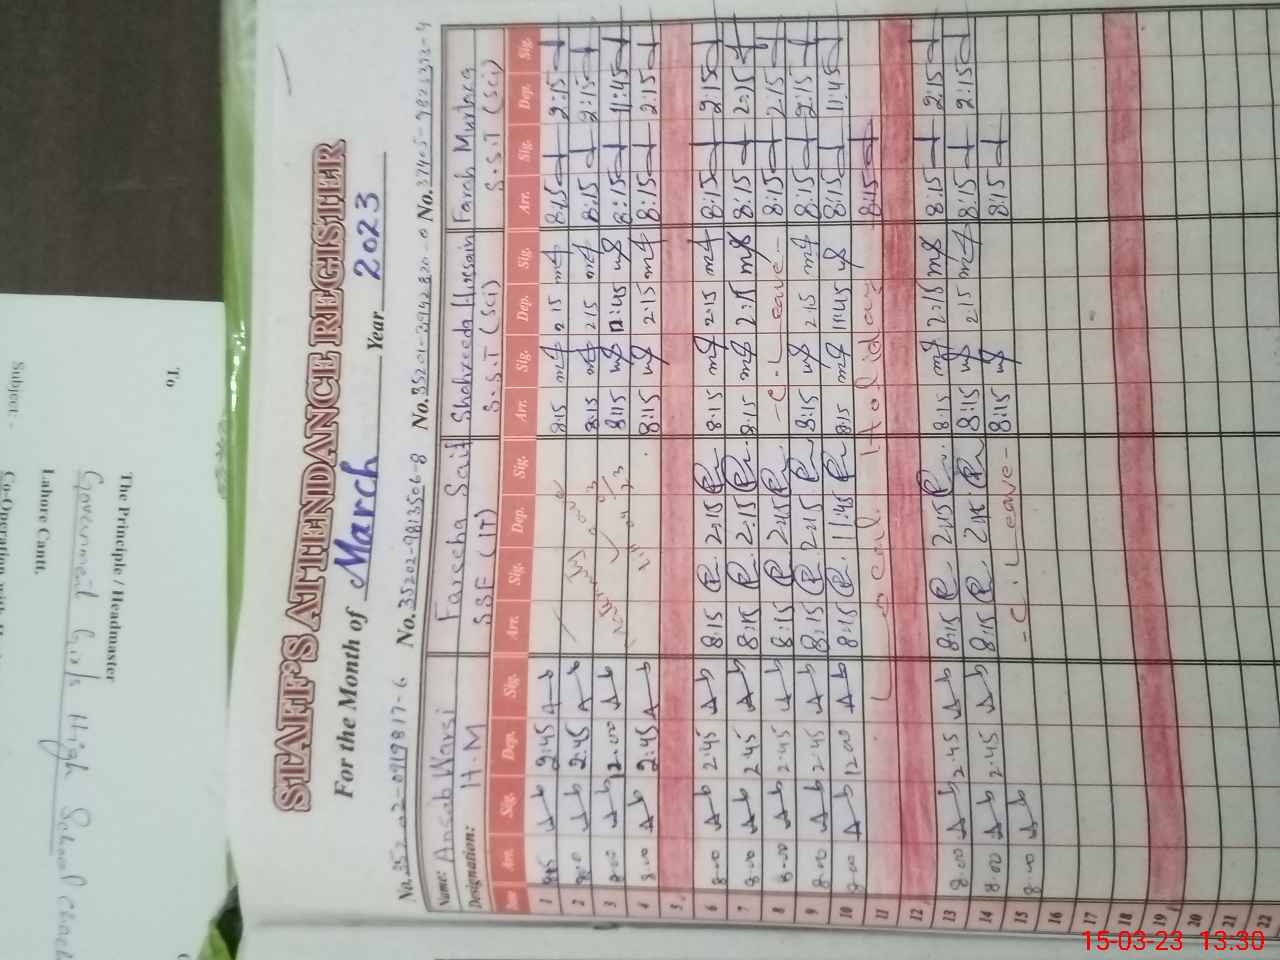 STAFF'S ATTENDANCE REGISTER
For the Month of March Year 2023
No. 35202-0919817-6 No. 35202-9813506-8 No. 35201-3942820-0 No. 37405-9821373-4
Name: Ansab Warsi Fareeha Saif Shahreeda Hussain Farah Murtaza
Designation: H.M SSE (IT) S.S.T (Sci) S.S.T (Sci)
Date Arr. Sig. Dep. Sig. Arr. Sig. Dep. Sig. Arr. Sig. Dep. Sig. Arr. Sig. Dep. Sig.
1 8:15 2:45 8:15 2:15 8:15 2:15
2 2:45 8:15 2:15 8:15 2:15
3 8:00 12:00 8:15 8:15 11:45
4 8:00 2:45 8:15 2:15 8:15 2:15
5
6 8:00 2:45 8:15 2:15 8:15 2:15 8:15 2:15
7 8:00 2:45 8:15 2:15 8:15 2:15 8:15 2:15
8 8:00 2:45 8:15 2:15 -C.Leave- 8:15 2:15
9 8:00 2:45 8:15 2:15 8:15 2:15 8:15 2:15
10 8:00 12:00 8:15 11:45 8:15 11:45 8:15 11:45
11 Local Holiday 8:15
12
13 8:00 2:45 8:15 2:15 8:15 2:15 8:15 2:15
14 8:00 2:45 8:15 2:15 8:15 2:15 8:15 2:15
15 8:00 -C.Leave- 8:15 8:15
16
17
18
19
20
21
22
To
The Principle / Headmaster
Government Girls High School
Lahore Cant.
Subject:-
15-03-23 13:30